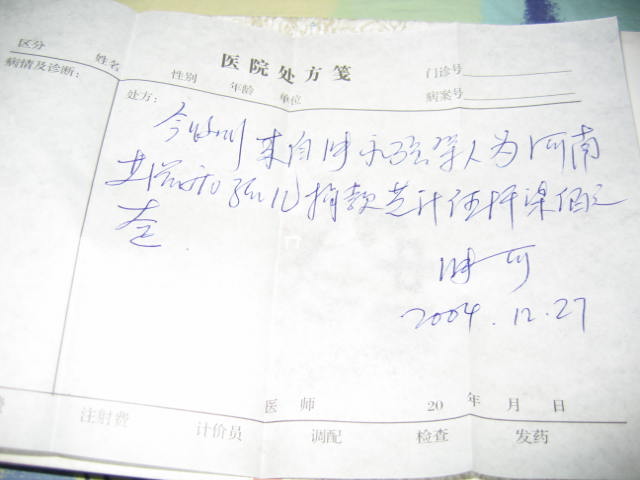 医院处方笺
区分 姓名 性别 年龄 单位 门诊号
病情及诊断: 病案号
处方:
今收到 来自 人为河南
艾滋病孤儿捐款共计伍仟 佰元
整
2004.12.27
医师 20 年 月 日
费 注射费 计价员 调配 检查 发药